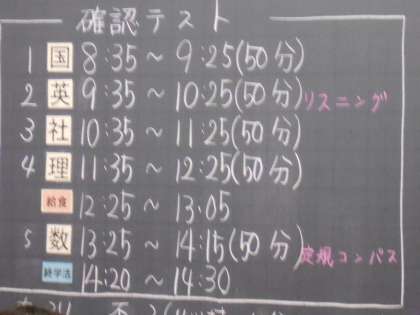 確認テスト
1 国 8:35 ~ 9:25(50分)
2 英 9:35 ~ 10:25(50分) リスニング
3 社 10:35 ~ 11:25(50分)
4 理 11:35 ~ 12:25(50分)
給食 12:25 ~ 13:05
5 数 13:25 ~ 14:15(50分) 定規コンパス
終学活 14:20 ~ 14:30